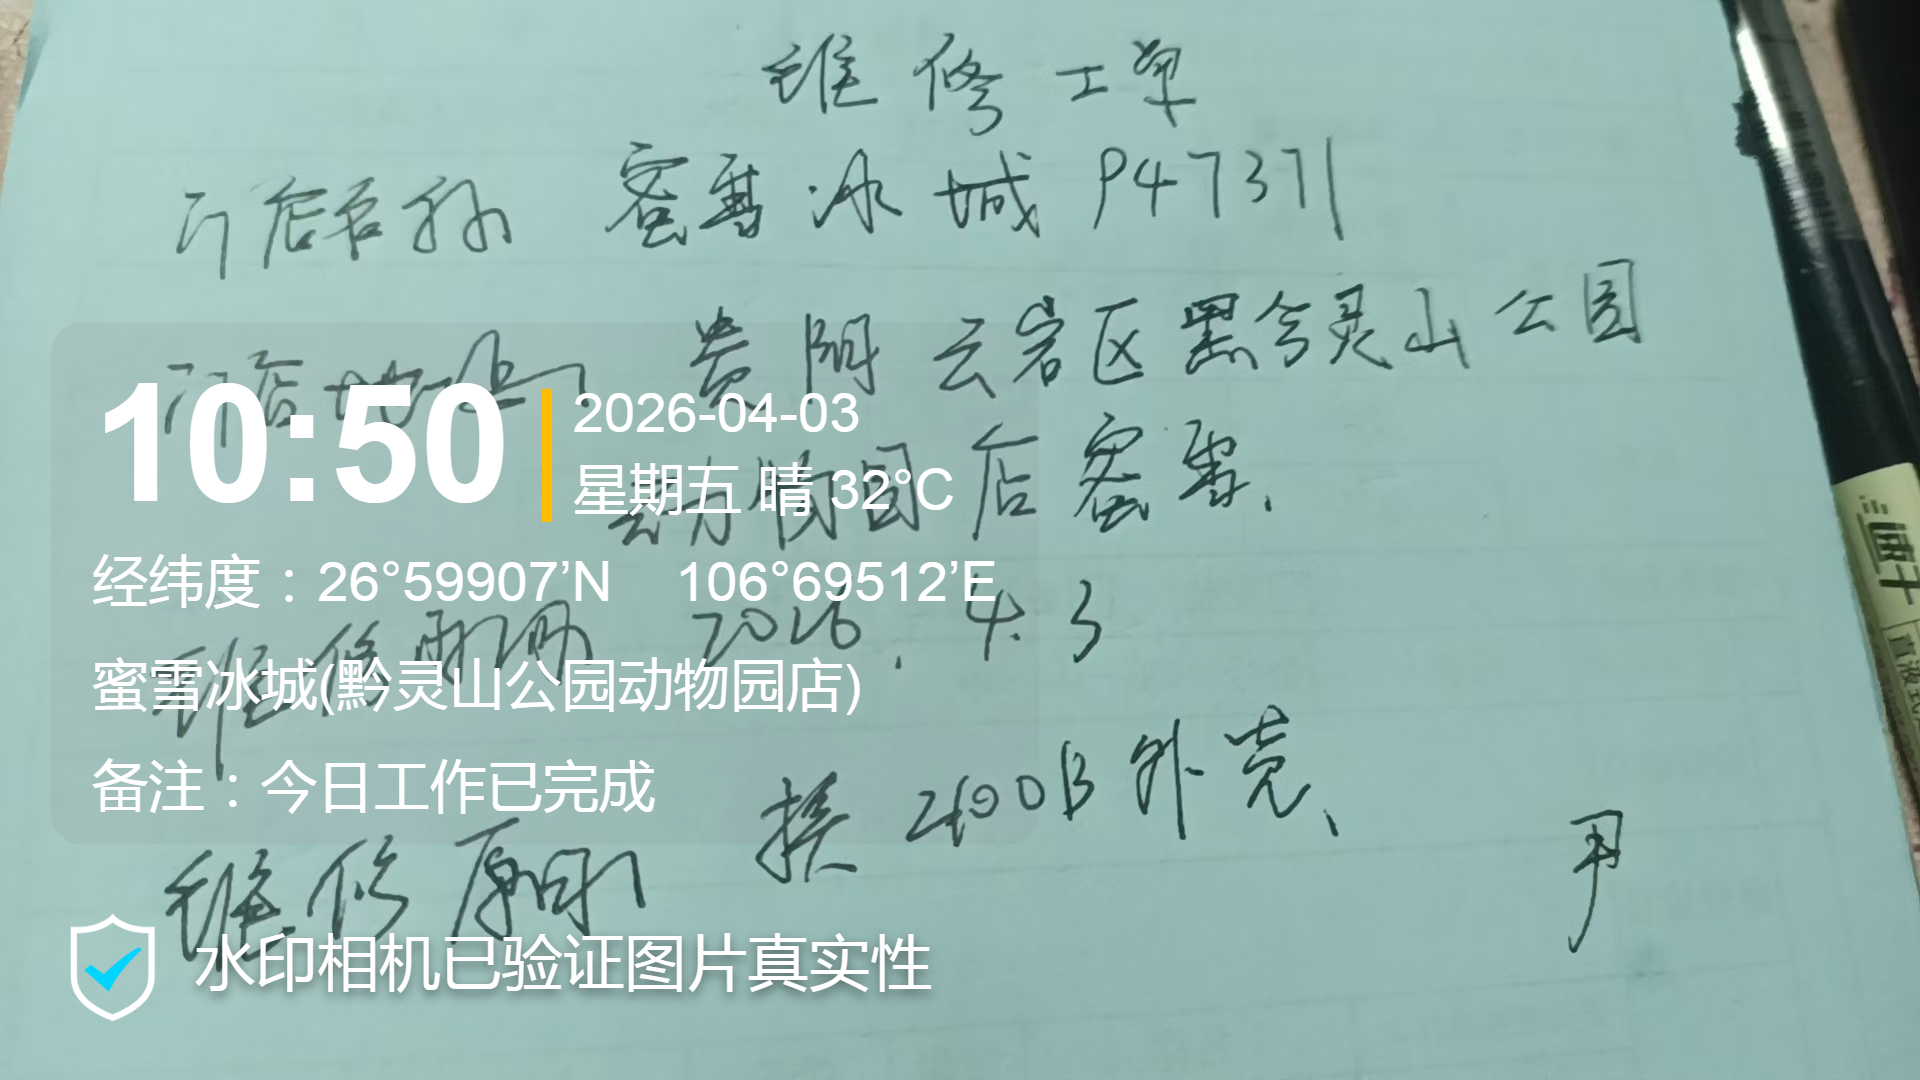 维修工单
门店名称 密雪冰城 P47371
门店地址 贵阳云岩区黔灵山公园
动物园店密雪、
维修时间 2026.4.3
维修原因 换400B外壳、
尹
10:50
2026-04-03
星期五 晴 32°C
经纬度：26°59907’N 106°69512’E
蜜雪冰城(黔灵山公园动物园店)
备注：今日工作已完成
水印相机已验证图片真实性